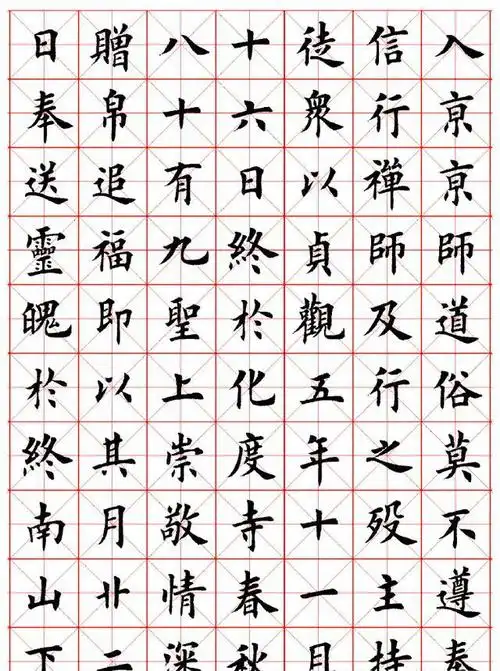 入京京師道俗莫不遵奉
信行禪師及行之歿主持
徒衆以貞觀五年十一月
十六日終於化度寺春秋
八十有九聖上崇敬情深
贈帛追福即以其月廿二
日奉送靈魄於終南山下